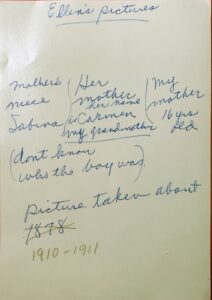 Ellen's pictures
Mother's niece Sabina
Her mother her name is Carmen my grandmother
My mother 16 yrs old
(don't know
who the boy was)
Picture taken about
1878
1910-1911